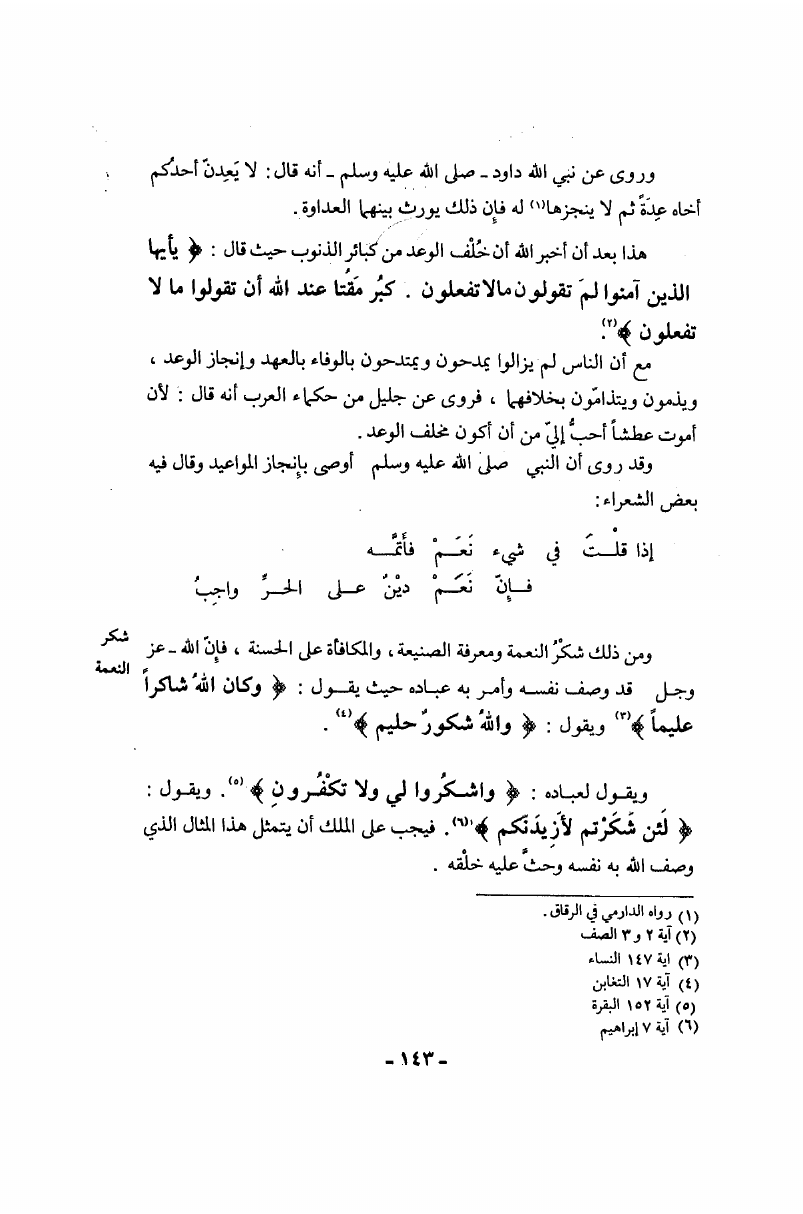 وروى عن نبي الله داود ـ صلى الله عليه وسلم ـ أنه قال : لا يَعِدنّ أحدُكم
أخاه عِدَةً ثم لا ينجزها(١) له فإن ذلك يورث بينهما العداوة .
هذا بعد أن أخبر الله أن خُلْف الوعد من كبائر الذنوب حيث قال : ﴿ يأيها
الذين آمنوا لمَ تقولون مالا تفعلون . كبُر مَقْتا عند الله أن تقولوا ما لا
تفعلون ﴾(٢).
مع أن الناس لم يزالوا يمدحون ويمتدحون بالوفاء بالعهد وإنجاز الوعد ،
ويذمون ويتذامّون بخلافهما ، فروى عن جليل من حكماء العرب أنه قال : لأن
أموت عطشاً أحبُّ إليّ من أن أكون مخلف الوعد .
وقد روى أن النبي صلى الله عليه وسلم أوصى بإنجاز المواعيد وقال فيه
بعض الشعراء :
إذا قلْــتَ في شيء نَعَــمْ فأتمَّــه
فــإنّ نَعَــمْ ديْنٌ عــلى الحــرِّ واجِبُ
شكر
النعمة
ومن ذلك شكْرُ النعمة ومعرفة الصنيعة ، والمكافأة على الحسنة ، فإنّ الله ـ عز
وجل قد وصف نفسه وأمر به عباده حيث يقول : ﴿ وكان اللهُ شاكراً
عليماً ﴾(٣) ويقول : ﴿ واللهُ شكورٌ حليم ﴾(٤) .
ويقول لعباده : ﴿ واشكُروا لي ولا تكْفُرونِ ﴾(٥). ويقول :
﴿ لَئن شَكَرْتم لأزِيدَنّكم ﴾(٦). فيجب على الملك أن يتمثل هذا المثال الذي
وصف الله به نفسه وحثَّ عليه خلْقه .
(١) رواه الدارمي في الرقاق .
(٢) آية ٢ و ٣ الصف
(٣) اية ١٤٧ النساء
(٤) آية ١٧ التغابن
(٥) آية ١٥٢ البقرة
(٦) آية ٧ إبراهيم
- ١٤٣ -